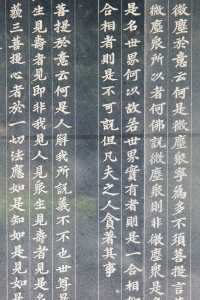 微塵於意云何是微塵眾寧為多不須菩提言
微塵眾所以者何佛說微塵眾則非微塵眾
是名世界何以故若世界實有者則是一合相
合相者則是不可說但凡夫之人貪著其事
菩提於意云何是人解我所說義不不也世尊
生見壽者見即非我見人見眾生見壽者見是
藐三菩提心者於一切法應如是知如是見如